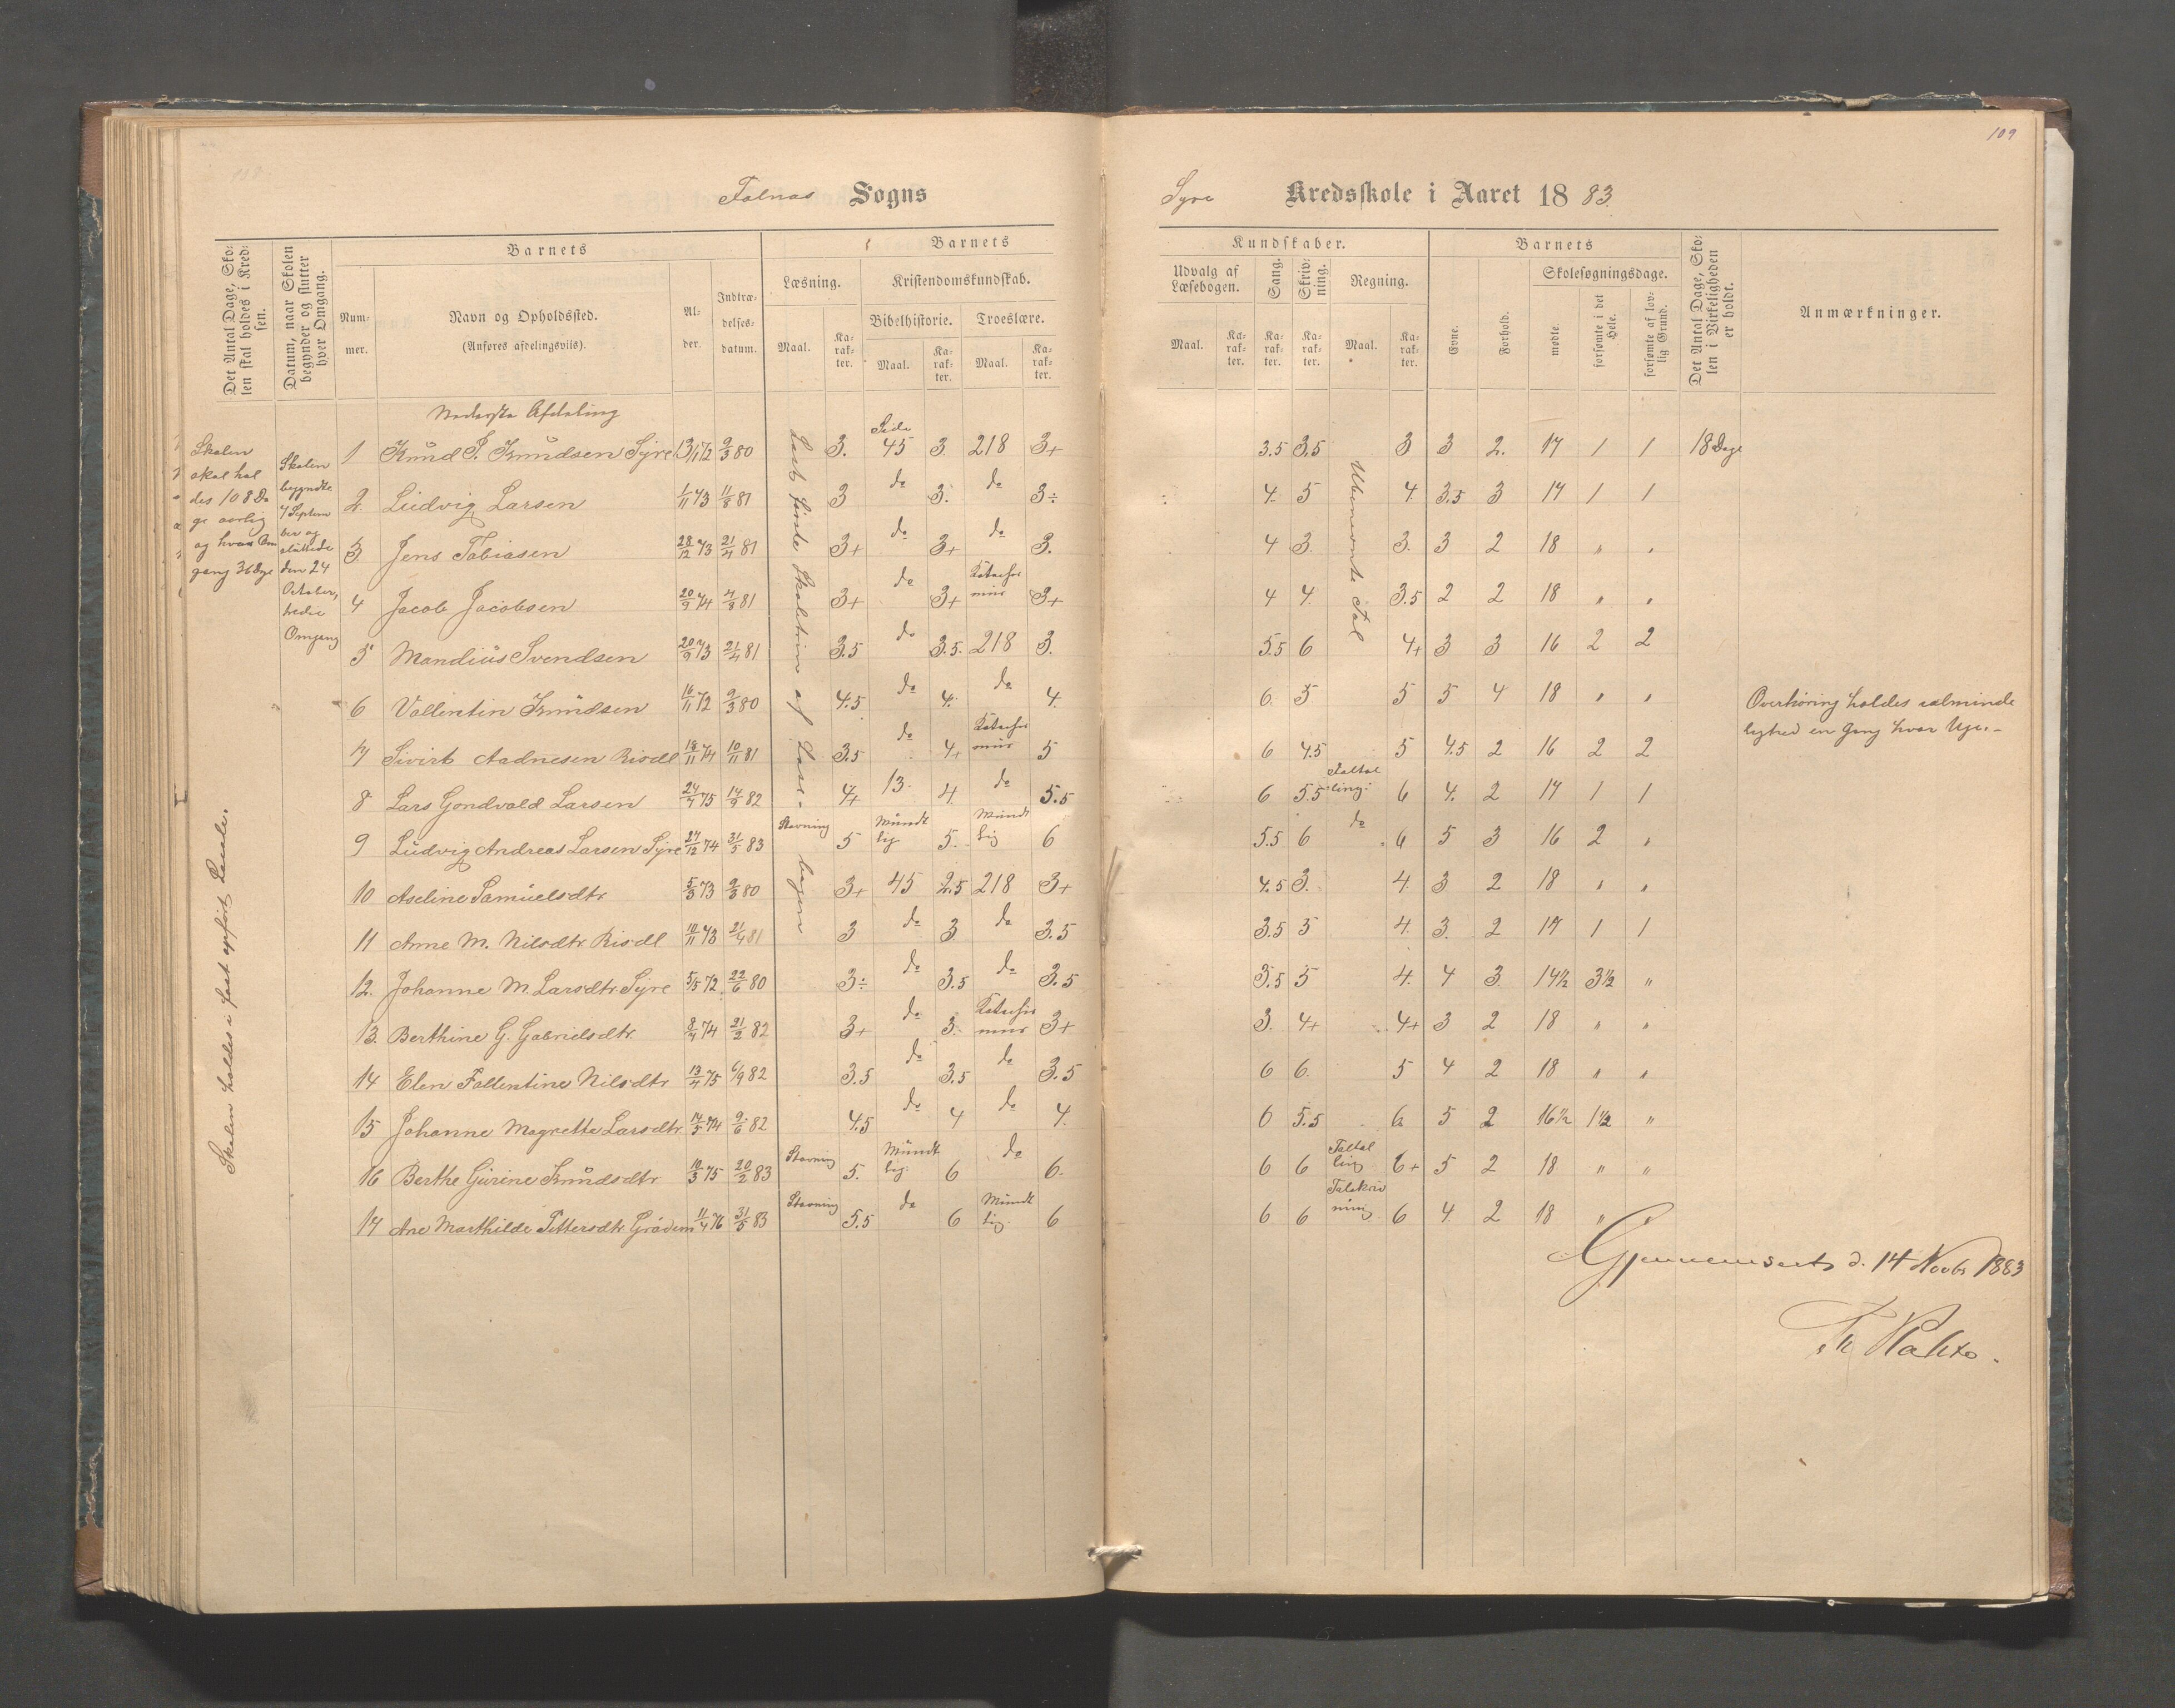 109
Falnas Sogns
Syre Kredsskole i Aaret 1883.
Det Antal Dage, Skolen skal holdes i Kredsen.
Datum, naar Skolen begynder og slutter hver Omgang.
Barnets
Nummer.
Navn og Opholdssted.
(Anføres afdelingsvils).
Alder.
Indtrædelsesdatum.
Barnets
Læsning.
Maal.
Karakter.
Kristendomskundskab.
Bibelhistorie.
Maal.
Karakter.
Troeslære.
Maal.
Karakter.
Kundskaber.
Udvalg af Læsebogen.
Maal.
Karakter.
Sang.
Karakter.
Skrivning.
Karakter.
Regning.
Maal.
Karakter.
Barnets
Evne.
Forhold.
Skolesøgningsdage.
mødte.
forsømte i det Hele.
forsømte af lovlig Grund.
Det Antal Dage, Skolen i Virkeligheden er holdt.
Anmærkninger.
Skolen
skal hol
des 108 Da
ge aarlig
og hver Om
gang 36 Dge
Skolen
begyndte
7 Septem
ber og
sluttede
den 24
October,
tredie
Omgang
Skolen holdes i fast opført Locale.
Nederste Afdeling
Læst første Skoletrin af Læsebogen
Ubenævnte Tal
1 Knud P. Knudsen Syre 13/1 72 9/3 80 3. Side 45 3 218 3+ 3.5 3.5 3 3 2. 17 1 1 18 Dage
2. Ludvig Larsen 1/11 73 11/8 81 3 do 3. do 3÷ 4. 5 4. 3.5 3 17 1 1
3. Jens Tobiasen 28/12 73 21/4 81 3+ do 3+ do 3. 4 3. 3. 3 2 18 " "
4 Jacob Jacobsen 20/9 74 4/8 81 3+ do 3+ 3+ 4 4 3.5 2 2 18 " "
5 Mandius Svendsen 20/9 73 21/4 81 3.5 do 3.5. 218 3. 5.5 6 4+ 3 3 16 2 2
6 Vallentin Knudsen 16/11 72 9/3 80 4.5 do 4. do 4. 6. 5 5 5 4 18 " "
Overhøring holdes ialminde
lighed en Gang hver Uge.-
7 Sivirt Aadnesen Risdl 18/11 74 10/11 81 3.5 do 4+ 5 6 4.5 5 4.5 2 16 2 2
8 Lars Gondvald Larsen 24/7 75 14/9 82 4+ 13. 4. do 5.5 6 5.5 Taltælling: 6 4. 2 17 1 1
9 Ludvig Andreas Larsen Syre 27/12 74 31/5 83 Stavning 5 Mundtlig 5. Mundtlig 6 5.5 6 do 6 5 3 16 2 "
10 Aseline Samuelsdtr 5/3 73 9/3 80 3+ 45 2.5 218 3+ 4.5 3. 4. 3 2 18 " "
11 Anne M. Nilsdtr. Risdl 10/11 73 21/4 81 3 do 3 do 3.5 3.5 5 4. 3. 2 17 1 1
12. Johanne M. Larsdtr. Syre 5/5 72. 22/6 80 3÷ do 3.5 do 3.5 3.5 5 4. 4 3 14½ 3½ "
13. Berthine G. Gabrielsdtr. 8/4 74 21/2 82 3+ do 3. 3+ 3. 4+ 4+ 3 2 18 " "
14 Elen Fallentine Nilsdtr 13/4 75 6/9 82 3.5 do 3.5 do 3.5 6 6. 5 4 2 18 " "
15 Johanne Magrette Larsdtr. 14/5 74 9/6 82 4.5 do 4 do 4. 6 5.5 6 5 2 16½ 1½ "
16 Berthe Gurine Knudsdtr 10/3 75 20/2 83 Stavning 5. Mundtlig. 6 do 6. 6 6 Taltælling 6+ 5 2 18 " "
17 Ane Marthilde Pettersdtr. Grødem 11/4 76 31/5 83 Stavning 5.5 do 6 Mundtlig. 6 6 6 Talskrivning 6 4 2 18 " "
Gjennemseet d. 14 Novbr 1883